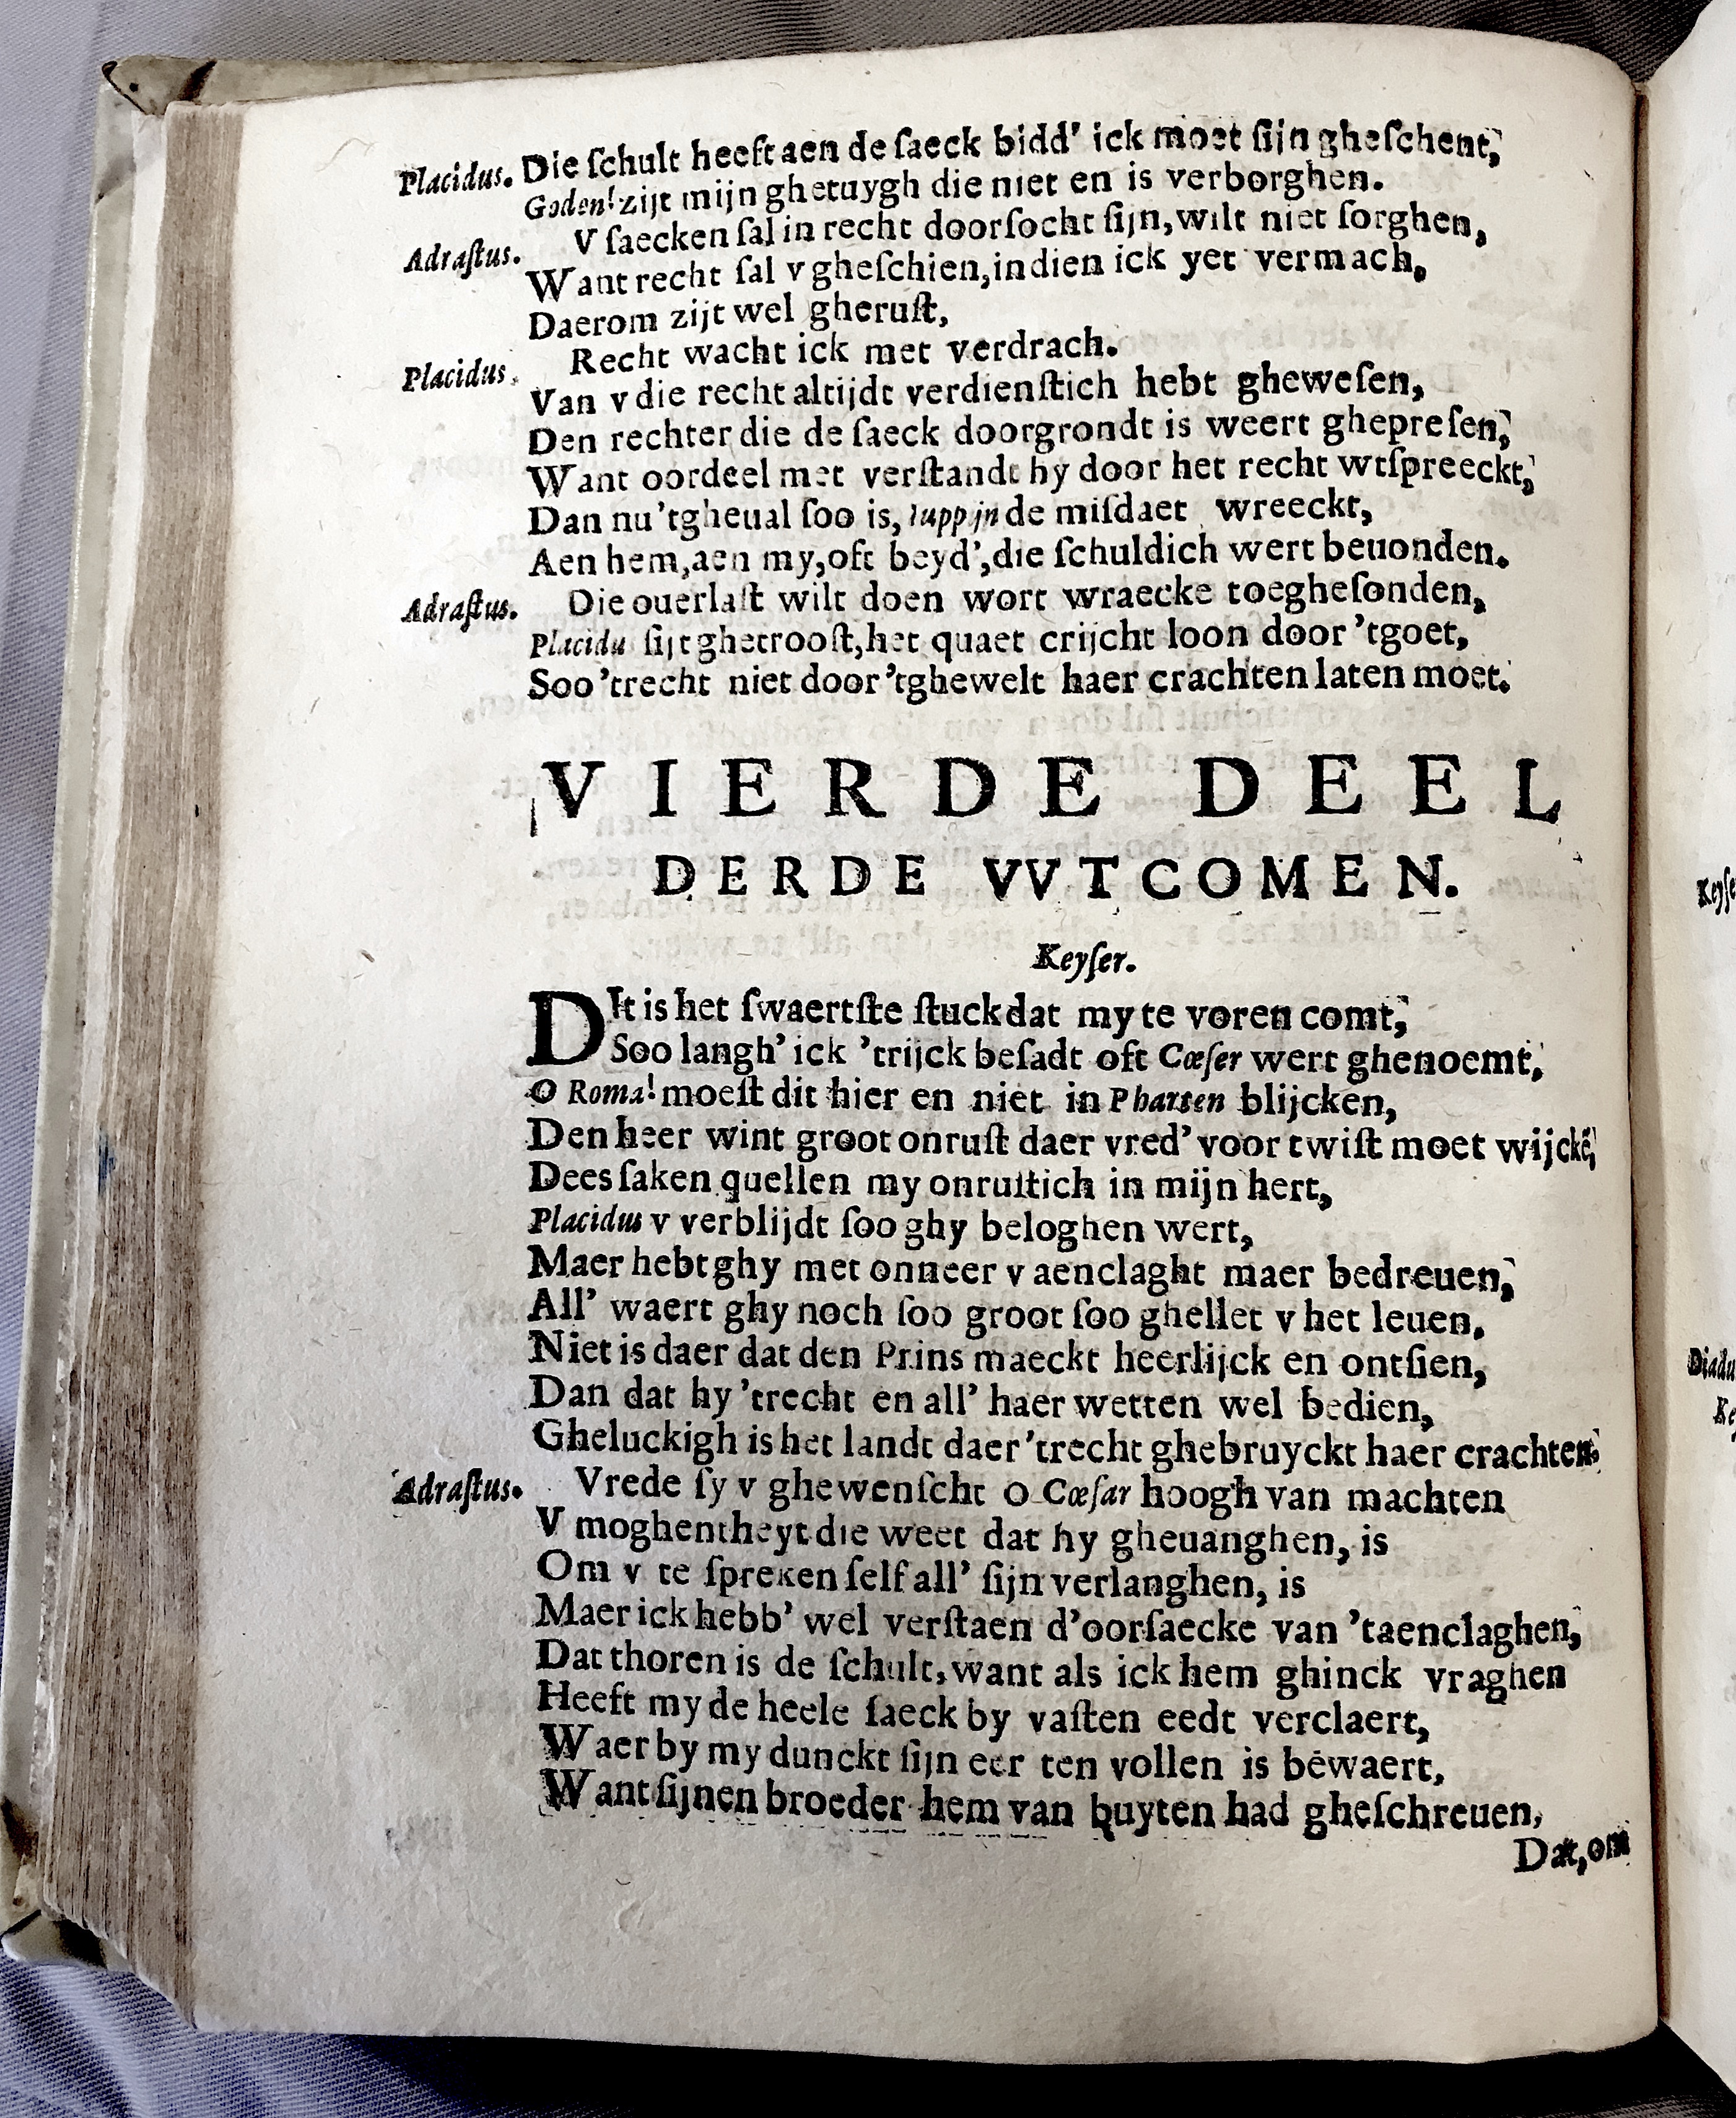 Placidus. Die ſchult heeft aen de ſaeck bidd' ick moet ſijn gheſchent,
Goden! zijt mijn ghetuygh die niet en is verborghen.
Adraſtus. V ſaecken ſal in recht doorſocht ſijn, wilt niet ſorghen,
Want recht ſal v gheſchien, indien ick yet vermach,
Daerom zijt wel gheruſt,
Placidus. Recht wacht ick met verdrach.
Van v die recht altijdt verdienſtich hebt gheweſen,
Den rechter die de ſaeck doorgrondt is weert ghepreſen,
Want oordeel met verſtandt hy door het recht wtſpreeckt,
Dan nu 'tgheual ſoo is, Iuppijn de miſdaet wreeckt,
Aen hem, aen my, oft beyd', die ſchuldich wert beuonden.
Adraſtus. Die ouerlaſt wilt doen wort wraecke toegheſonden,
Placidu ſijt ghetrooſt, het quaet crijcht loon door 'tgoet,
Soo 'trecht niet door 'tghewelt haer crachten laten moet.
VIERDE DEEL
DERDE VVTCOMEN.
Keyſer.
DIt is het ſwaertſte ſtuck dat my te voren comt,
Soo langh' ick 'trijck beſadt oft Cæſer wert ghenoemt,
O Roma! moeſt dit hier en niet in Pharten blijcken,
Den heer wint groot onruſt daer vred' voor twiſt moet wijckē,
Dees ſaken quellen my onruſtich in mijn hert,
Placidus v verblijdt ſoo ghy beloghen wert,
Maer hebt ghy met onneer v aenclaght maer bedreuen,
All' waert ghy noch ſoo groot ſoo ghellet v het leuen.
Niet is daer dat den Prins maeckt heerlijck en ontſien,
Dan dat hy 'trecht en all' haer wetten wel bedien,
Gheluckigh is het landt daer 'trecht ghebruyckt haer crachten.
Adraſtus. Vrede ſy v ghewenſcht O Cæſar hoogh van machten
V moghentheyt die weet dat hy gheuanghen, is
Om v te ſpreken ſelf all' ſijn verlanghen, is
Maer ick hebb' wel verſtaen d'oorſaecke van 'taenclaghen,
Dat thoren is de ſchult, want als ick hem ghinck vraghen
Heeft my de heele ſaeck by vaſten eedt verclaert,
Waer by my dunckt ſijn eer ten vollen is bewaert,
Want ſijnen broeder hem van buyten had gheſchreuen,
Dat, om
Keyſe
Diadu
Ke